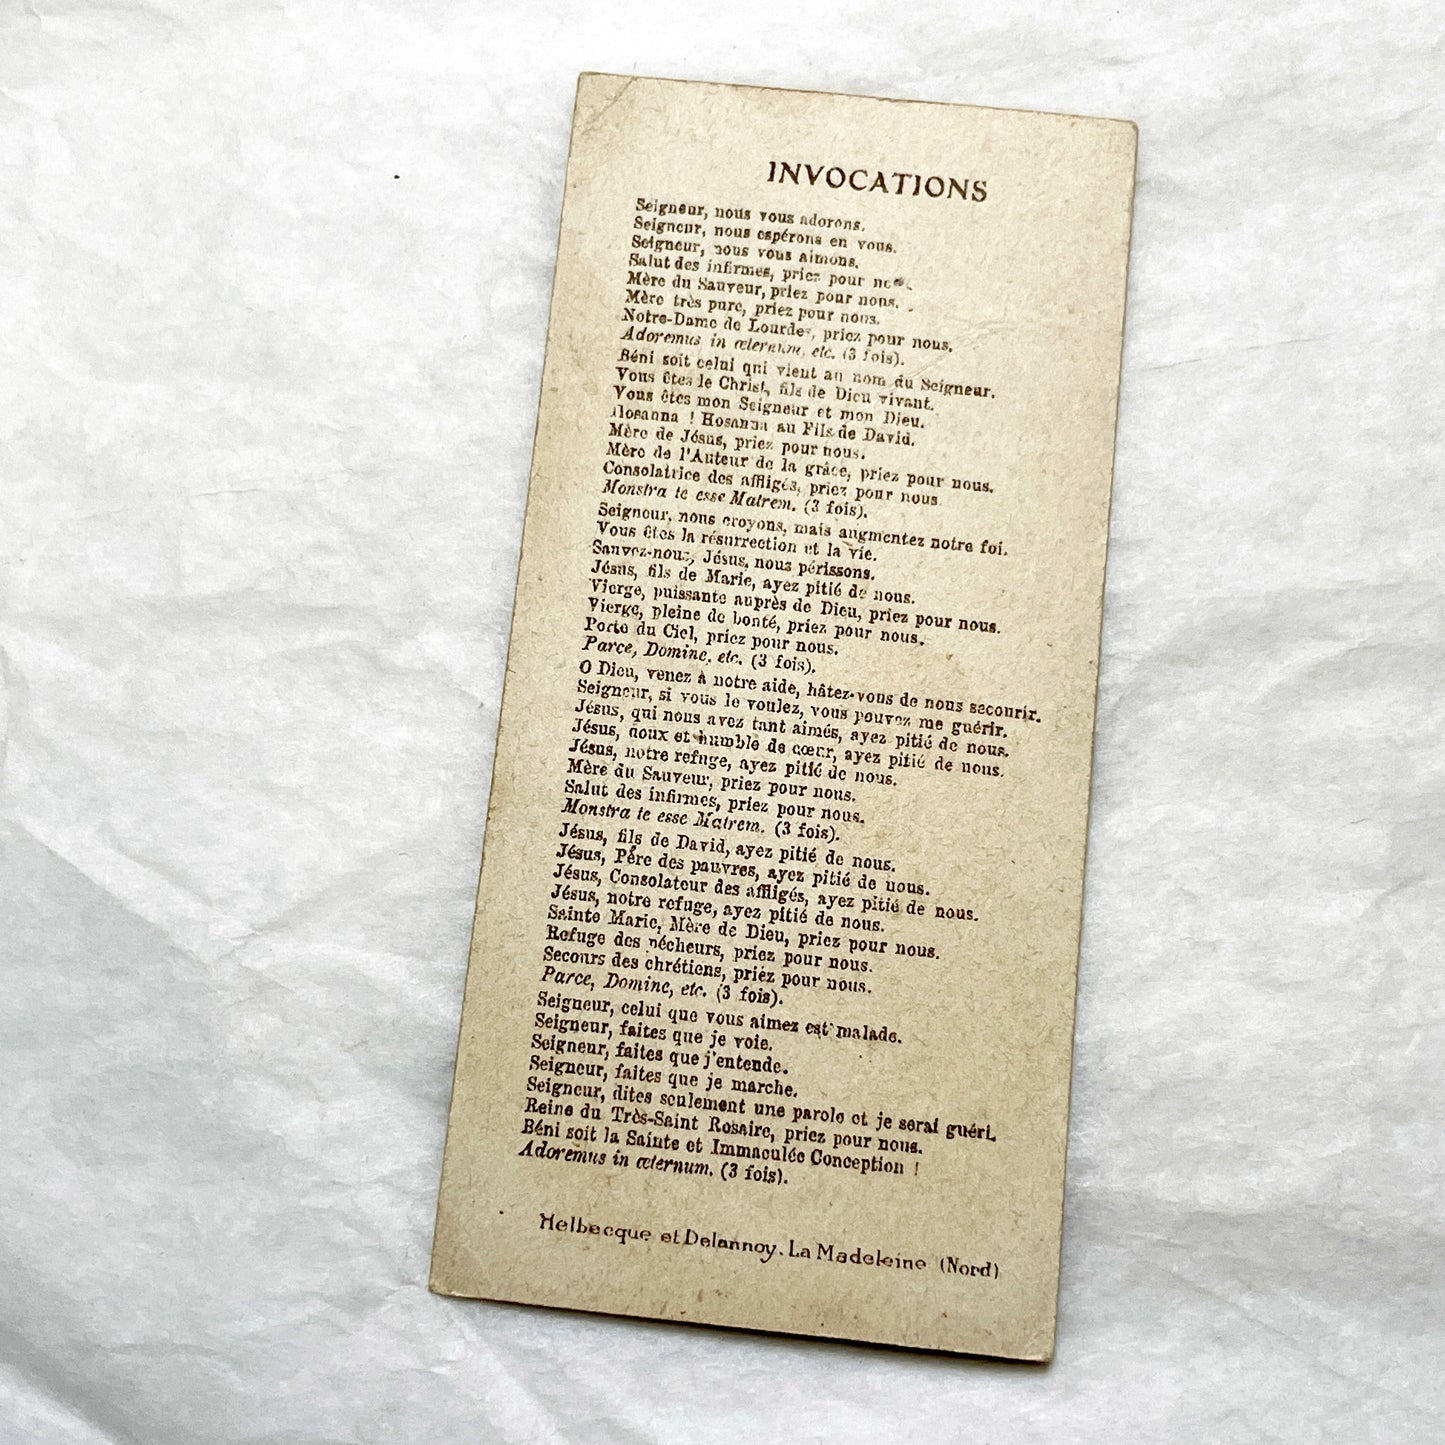 INVOCATIONS
Seigneur, nous vous adorons.
Seigneur, nous espérons en vous.
Seigneur, nous vous aimons.
Salut des infirmes, priez pour
Mère du Sauveur, priez pour nous.
Mère très pure, priez pour nous.
Notre-Dame de Lourdes, priez pour nous.
Adoremus in æternum, etc. (3 fois).
Béni soit celui qui vient au nom du Seigneur.
Vous êtes le Christ, fils de Dieu vivant.
Vous êtes mon Seigneur et mon Dieu.
Hosanna ! Hosanna au Fils de David.
Mère de Jésus, priez pour nous.
Mère de l'Auteur de la grâce, priez pour nous.
Consolatrice des affligés, priez pour nous
Monstra te esse Matrem. (3 fois).
Seigneur, nous croyons, mais augmentez notre foi.
Vous êtes la résurrection et la vie.
Sauvez-nous, Jésus, nous périssons.
Jésus, fils de Marie, ayez pitié de nous.
Vierge, puissante auprès de Dieu, priez pour nous.
Vierge, pleine de bonté, priez pour nous.
Porte du Ciel, priez pour nous.
Parce, Domine, etc. (3 fois).
O Dieu, venez à notre aide, hâtez-vous de nous secourir.
Seigneur, si vous le voulez, vous pouvez me guérir.
Jésus, qui nous avez tant aimés, ayez pitié de nous.
Jésus, doux et humble de cœur, ayez pitié de nous.
Jésus, notre refuge, ayez pitié de nous.
Mère du Sauveur, priez pour nous.
Salut des infirmes, priez pour nous.
Monstra te esse Matrem. (3 fois).
Jésus, fils de David, ayez pitié de nous.
Jésus, Père des pauvres, ayez pitié de nous.
Jésus, Consolateur des affligés, ayez pitié de nous.
Jésus, notre refuge, ayez pitié de nous.
Sainte Marie, Mère de Dieu, priez pour nous.
Refuge des pécheurs, priez pour nous.
Secours des chrétiens, priez pour nous.
Parce, Domine, etc. (3 fois).
Seigneur, celui que vous aimez est malade.
Seigneur, faites que je voie.
Seigneur, faites que j'entende.
Seigneur, faites que je marche.
Seigneur, dites seulement une parole et je serai guéri.
Reine du Très-Saint Rosaire, priez pour nous.
Béni soit la Sainte et Immaculée Conception !
Adoremus in æternum. (3 fois).
Helbecque et Delannoy. La Madeleine (Nord)